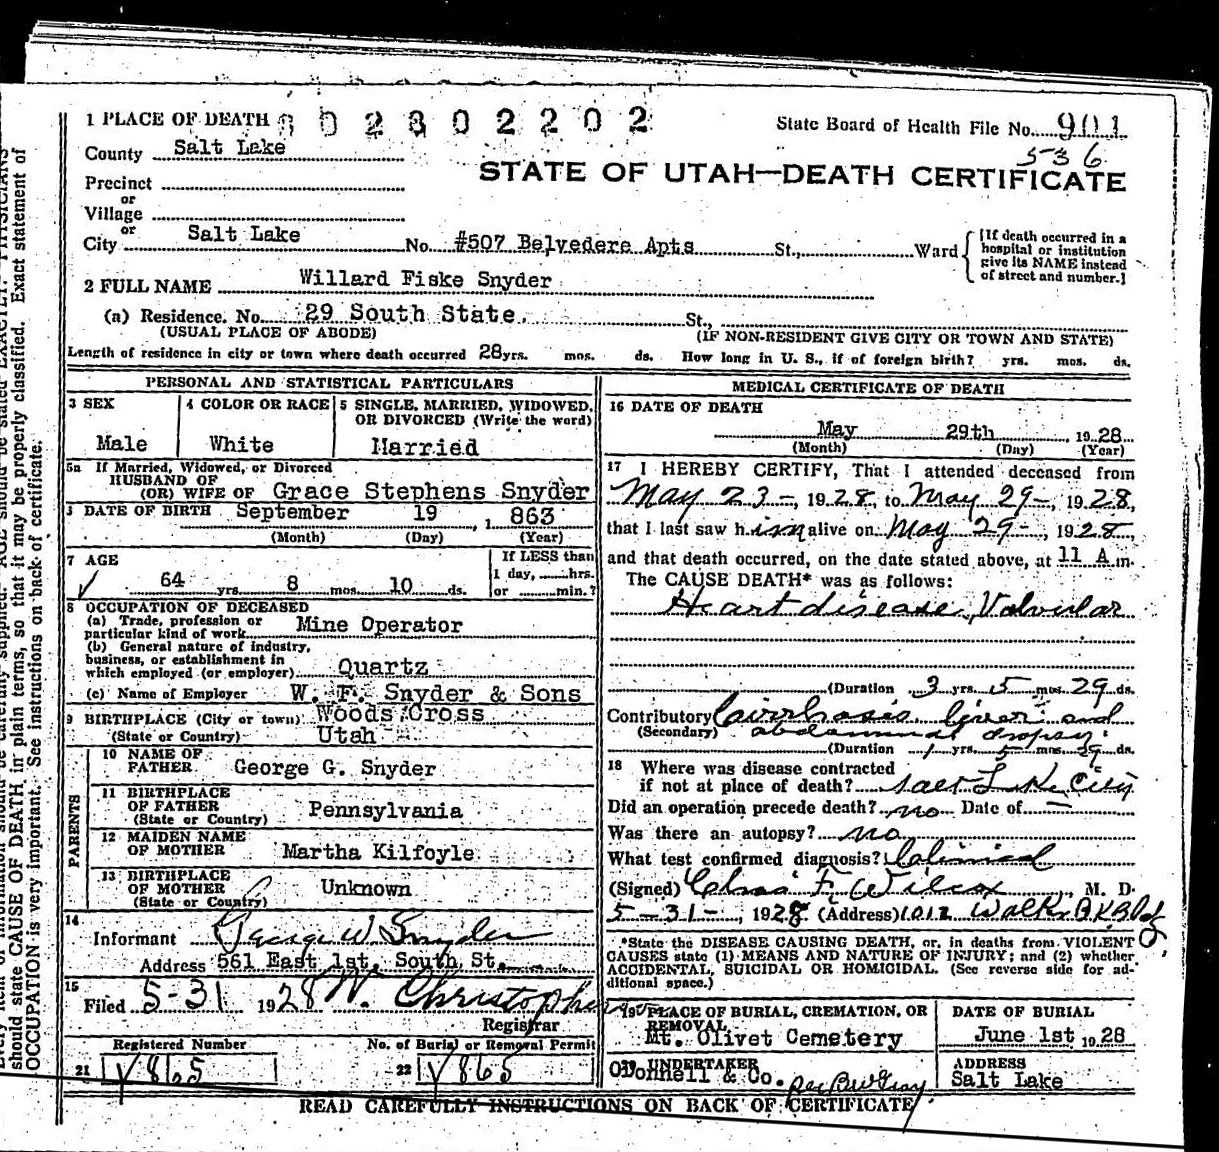 1 PLACE OF DEATH 2802202
State Board of Health File No. 901
536
County Salt Lake
STATE OF UTAH—DEATH CERTIFICATE
Precinct
or
Village
or
City Salt Lake No. #507 Belvedere Apts St., Ward
[If death occurred in a hospital or institution give its NAME instead of street and number.]
2 FULL NAME Willard Fiske Snyder
(a) Residence. No. 29 South State. St.,
(USUAL PLACE OF ABODE) (IF NON-RESIDENT GIVE CITY OR TOWN AND STATE)
Length of residence in city or town where death occurred 28 yrs. mos. ds. How long in U. S., if of foreign birth? yrs. mos. ds.
PERSONAL AND STATISTICAL PARTICULARS
3 SEX
Male
4 COLOR OR RACE
White
5 SINGLE, MARRIED, WIDOWED,
OR DIVORCED (Write the word)
Married
5a If Married, Widowed, or Divorced
HUSBAND OF
(OR) WIFE OF Grace Stephens Snyder
DATE OF BIRTH September 19, 1863
(Month) (Day) (Year)
7 AGE
64 yrs 8 mos 10 ds.
If LESS than
1 day, hrs.
or min.?
8 OCCUPATION OF DECEASED
(a) Trade, profession or
particular kind of work Mine Operator
(b) General nature of industry,
business, or establishment in
which employed (or employer) Quartz
(c) Name of Employer W. F. Snyder & Sons
9 BIRTHPLACE (City or town) Woods Cross
(State or Country) Utah
PARENTS
10 NAME OF
FATHER George G. Snyder
11 BIRTHPLACE
OF FATHER Pennsylvania
(State or Country)
12 MAIDEN NAME
OF MOTHER Martha Kilfoyle
13 BIRTHPLACE
OF MOTHER Unknown
(State or Country)
14
Informant George W. Snyder
Address 561 East 1st. South St.
15
Filed 5-31 1928 W. Christopherson
Registrar
Registered Number
21 865
No. of Burial or Removal Permit
22 865
MEDICAL CERTIFICATE OF DEATH
16 DATE OF DEATH
May 29th, 1928
(Month) (Day) (Year)
17 I HEREBY CERTIFY, That I attended deceased from
May 23-, 1928, to May 29-, 1928,
that I last saw him alive on May 29-, 1928,
and that death occurred, on the date stated above, at 11 A m.
The CAUSE DEATH* was as follows:
Heart disease, Valvular
(Duration 3 yrs. 5 mos. 29 ds.
Contributory Cirrhosis liver and
(Secondary) abdominal dropsy.
(Duration 1 yrs. 5 mos. 29 ds.
18 Where was disease contracted
if not at place of death? Salt Lake City
Did an operation precede death? no Date of —
Was there an autopsy? no
What test confirmed diagnosis? Clinical
(Signed) Chas F. Wilcox, M. D.
5-31-, 1928 (Address) 1012 Walker Bk Bldg
*State the DISEASE CAUSING DEATH, or, in deaths from VIOLENT
CAUSES state (1) MEANS AND NATURE OF INJURY; and (2) whether
ACCIDENTAL, SUICIDAL OR HOMICIDAL. (See reverse side for ad-
ditional space.)
19 PLACE OF BURIAL, CREMATION, OR
REMOVAL
Mt. Olivet Cemetery
DATE OF BURIAL
June 1st, 1928
UNDERTAKER
O'Donnell & Co.
ADDRESS
Salt Lake
READ CAREFULLY INSTRUCTIONS ON BACK OF CERTIFICATE
should state CAUSE OF DEATH in plain terms, so that it may be properly classified. Exact statement of
OCCUPATION is very important. See instructions on back of certificate.